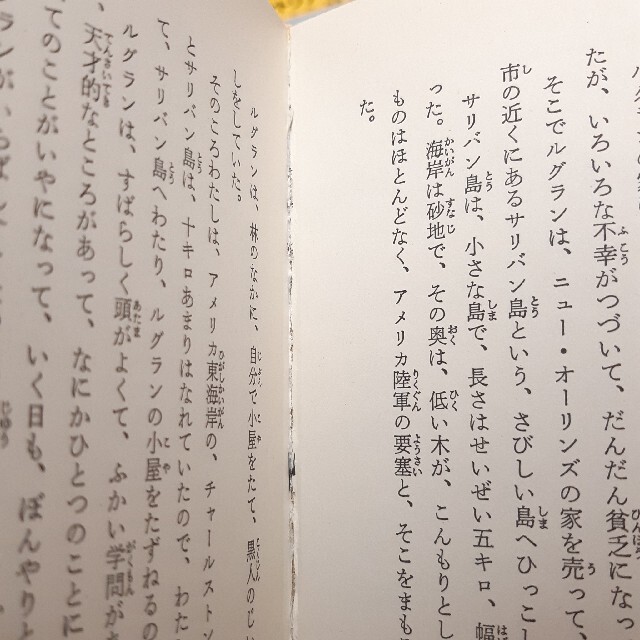 たが、いろいろな不幸がつづいて、だんだん貧乏になっ
そこでルグランは、ニュー・オーリンズの家を売って、
市の近くにあるサリバン島という、さびしい島へひっこし
サリバン島は、小さな島で、長さはせいぜい五キロ、幅
った。海岸は砂地で、その奥は、低い木が、こんもりとし
ものはほとんどなく、アメリカ陸軍の要塞と、そこをまも
た。
ルグランは、林のなかに、自分で小屋をたて、黒人のじい
しをしていた。
そのころわたしは、アメリカ東海岸の、チャールストン
とサリバン島は、十キロあまりはなれていたので、わた
て、サリバン島へわたり、ルグランの小屋をたずねるの
ルグランは、すばらしく頭がよくて、ふかい学問が
、天才的なところがあって、なにかひとつのことに
てのことがいやになって、いく日も、ぼんやりと